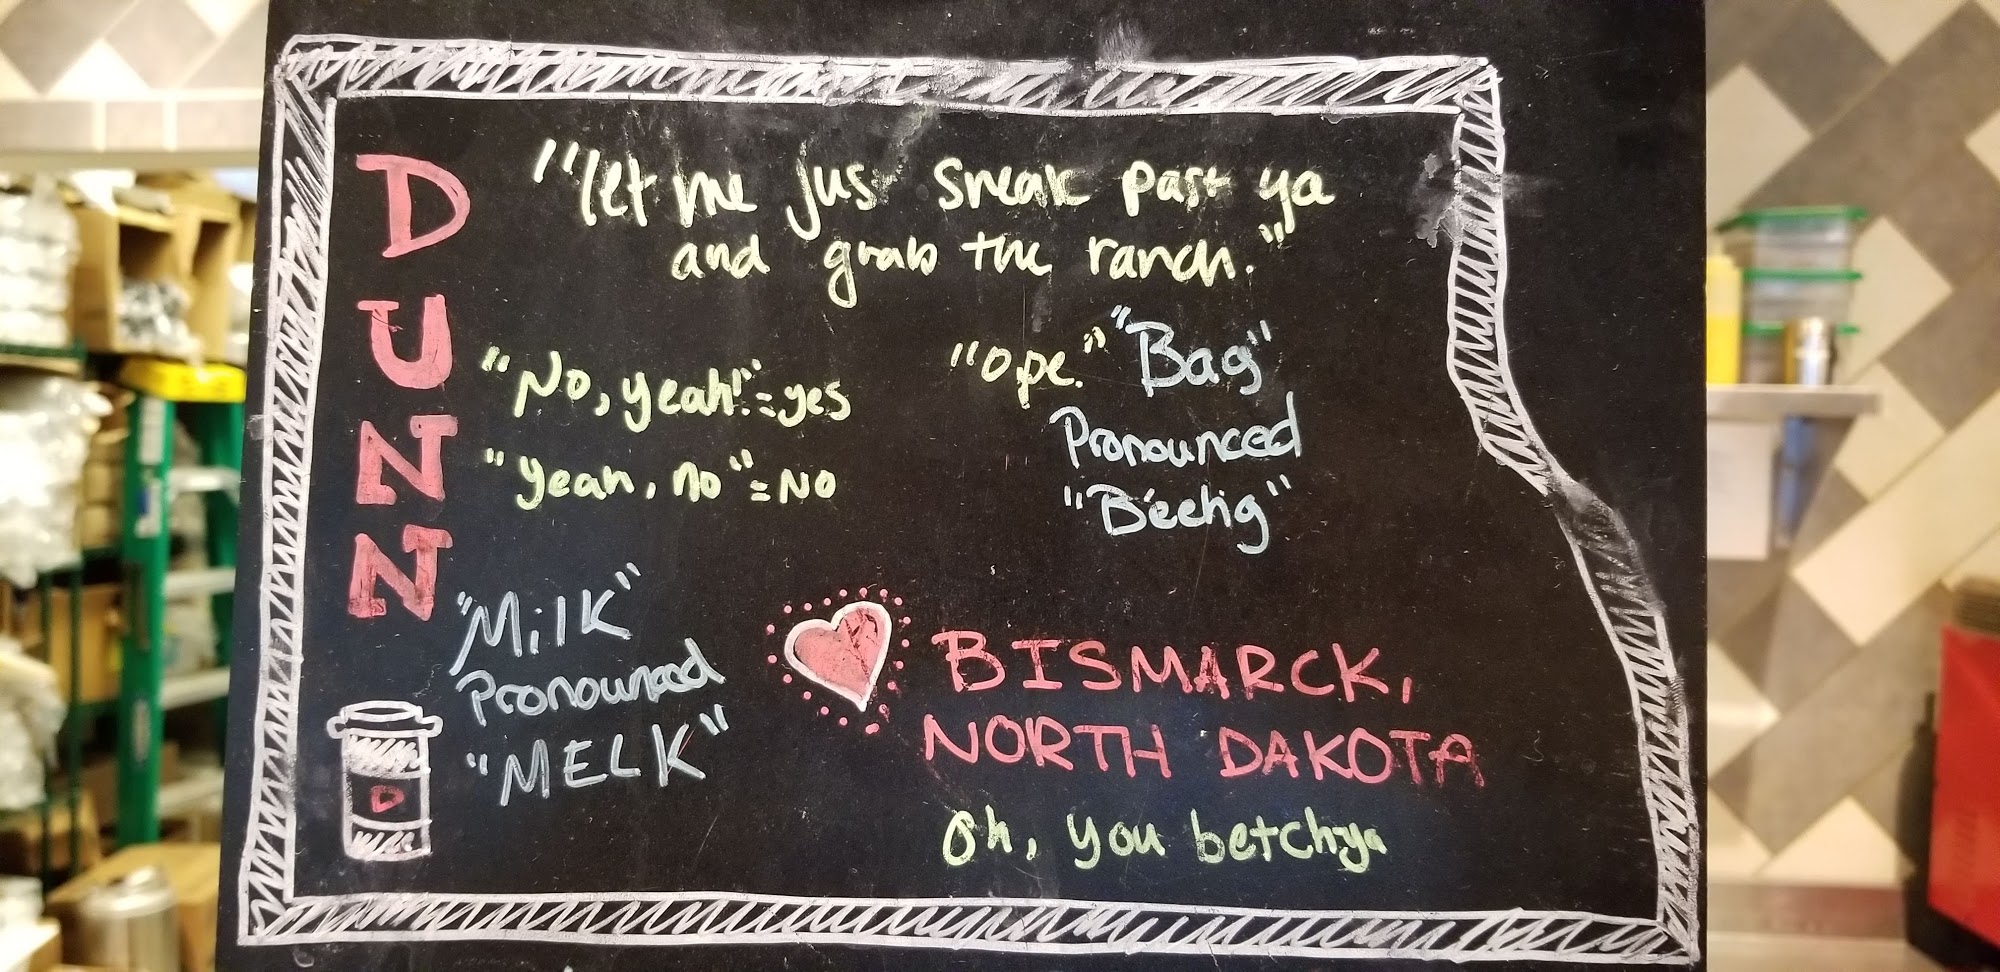 DUNN
"let me just sneak past ya
and grab the ranch."
"No, yeah!"=yes
"yeah, no"=NO
"ope." "Bag"
Pronounced
"Béehig"
"Milk"
Pronounced
"MELK"
BISMARCK,
NORTH DAKOTA
Oh, you betchya
D